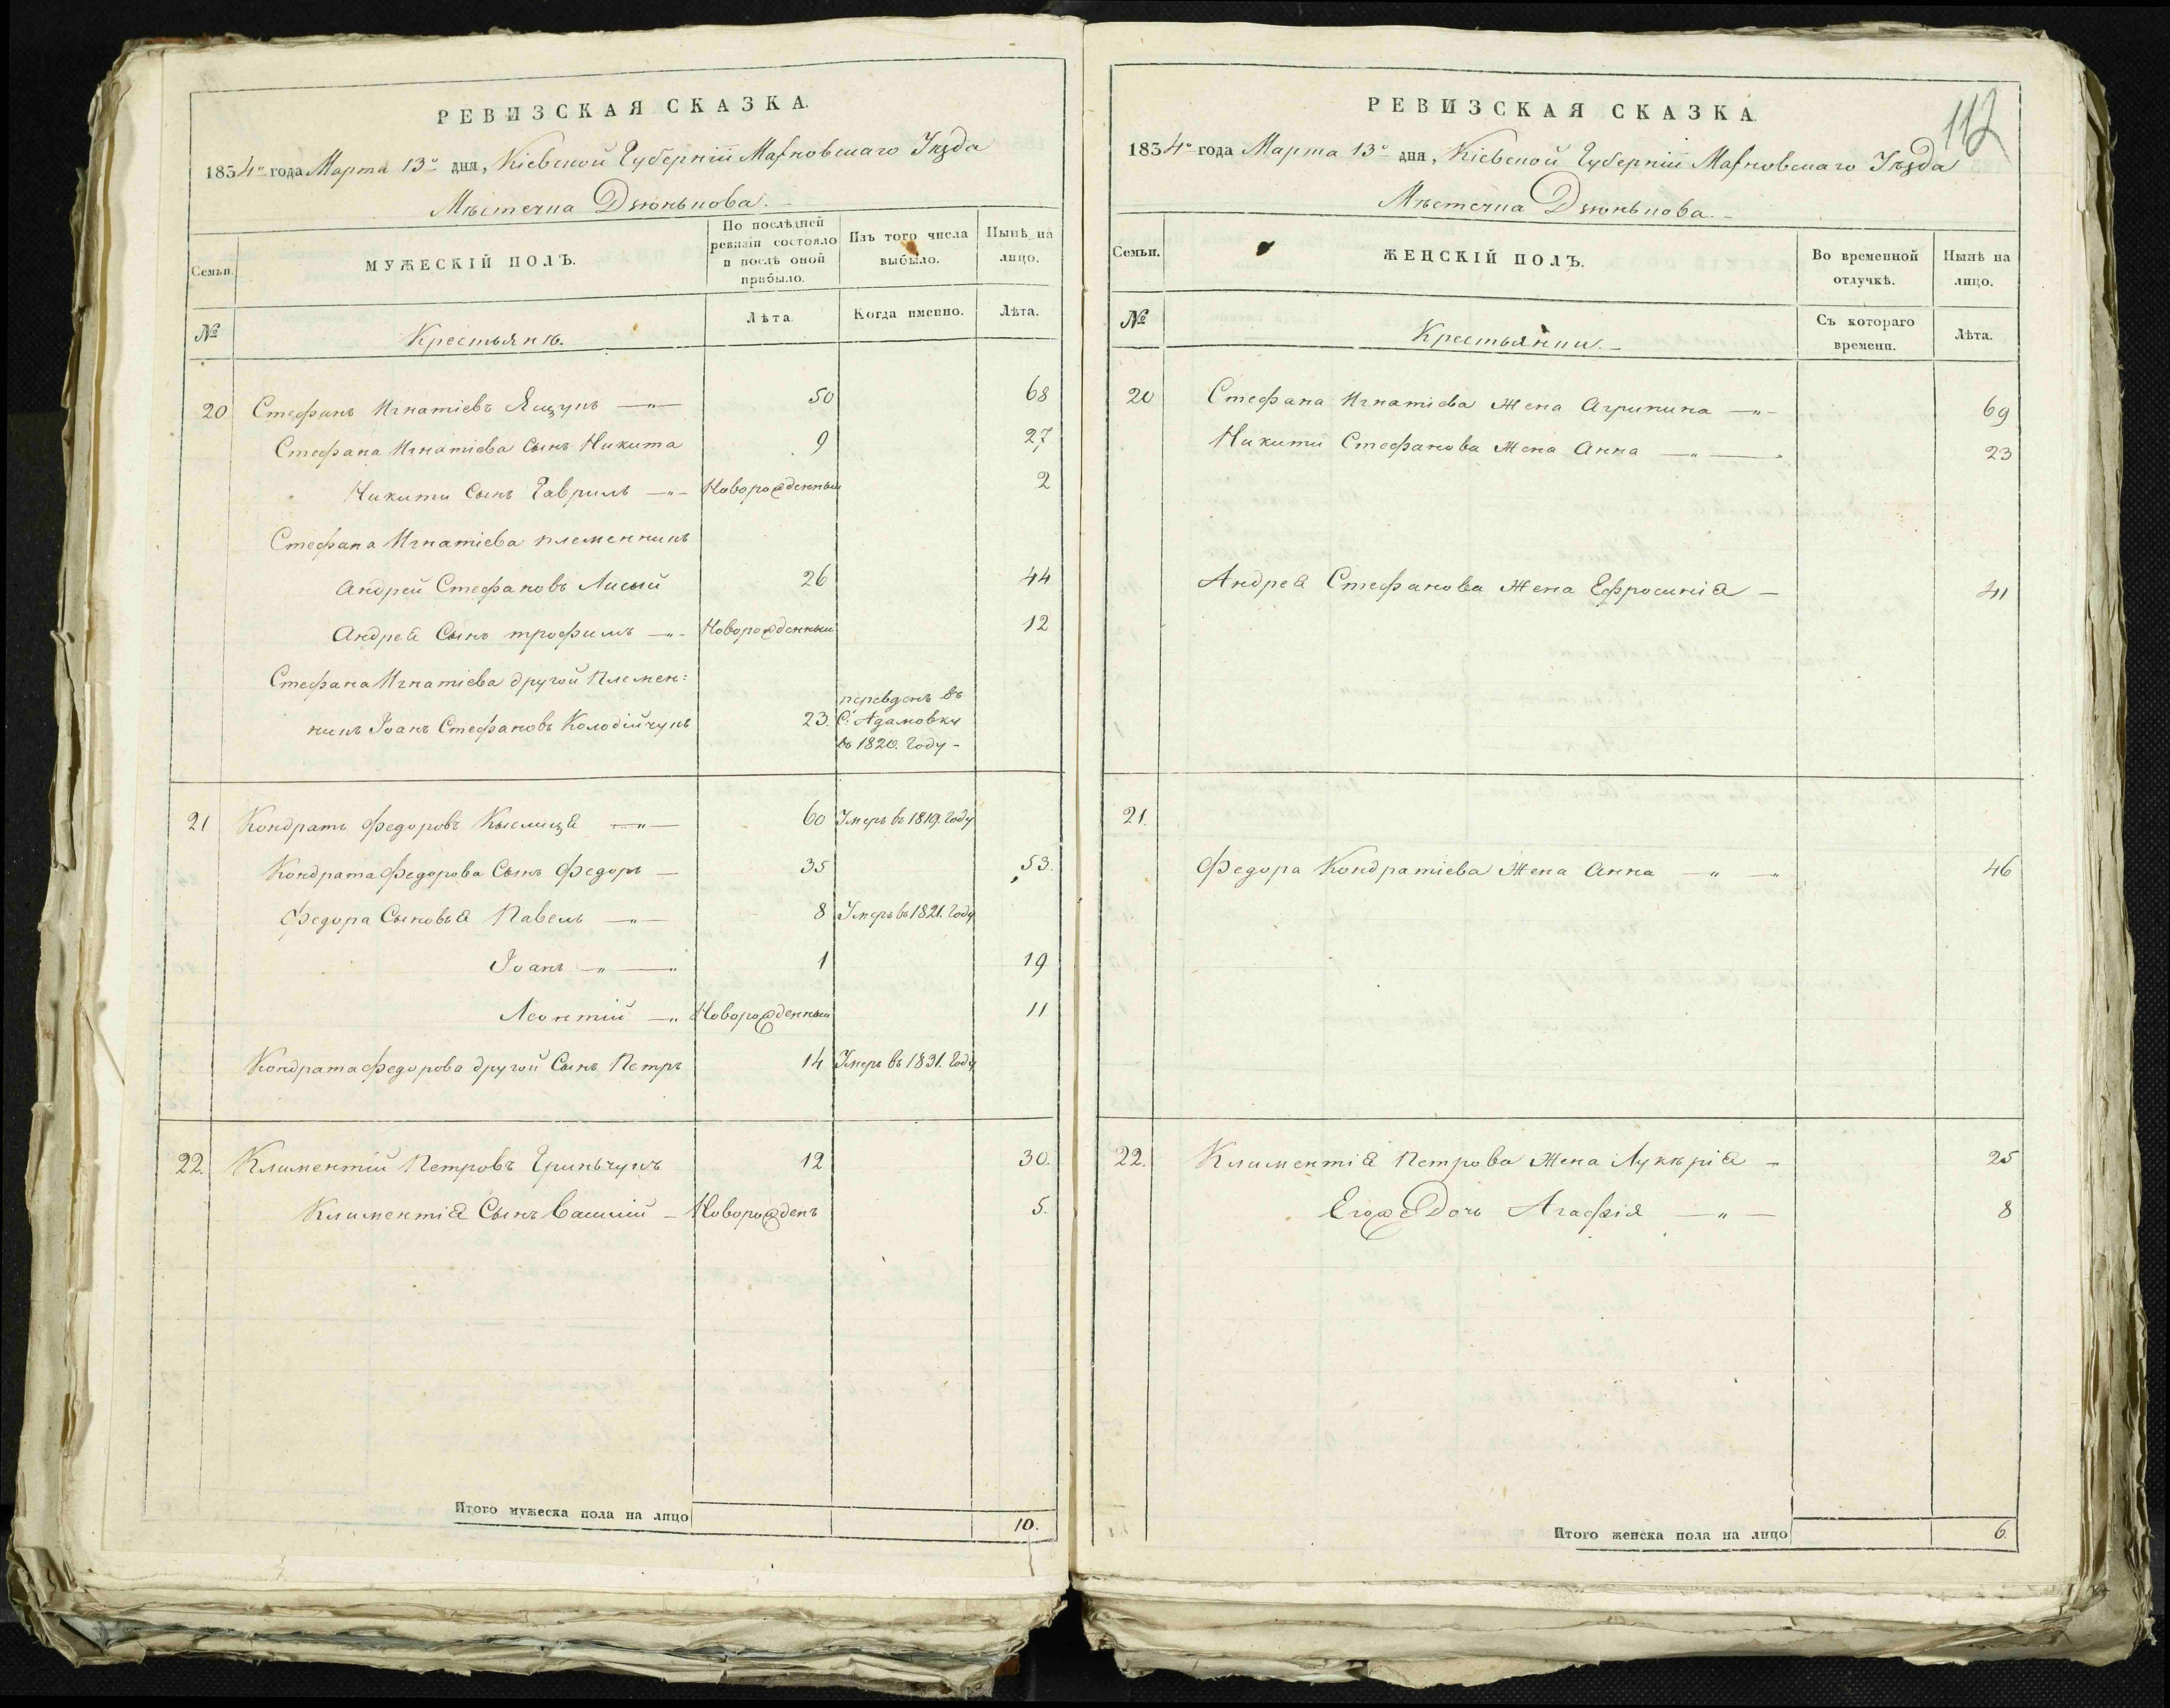 РЕВИЗСКАЯ СКАЗКА.
1834го года Марта 13го дня, Кіевской Губерніи Махновскаго Уѣзда
Мѣстечка Дзюнькова.
Семьи.
МУЖЕСКІЙ ПОЛЪ.
По послѣдней ревизіи состояло и послѣ оной прибыло.
Изъ того числа выбыло.
Нынѣ на лицо.
№
Крестьянѣ.
Лѣта.
Когда именно.
Лѣта.
20 Стефанъ Игнатіевъ Ящукъ —„— 50 68
Стефана Игнатіева Сынъ Никита 9 27
Никити Сынъ Гаврилъ —„— Новорожденный 2
Стефана Игнатіева племенникъ
Андрей Стефановъ Лисый 26 44
Андрея Сынъ трофимъ —„— Новорожденный 12
Стефана Игнатіева другой Племен:
никъ Іоанъ Стефановъ Колодійчукъ 23. переведенъ въ С. Адамовку въ 1820. Году –
21 Кондратъ Федоровъ —„— 60 Умеръ въ 1819. Году
Кондрата Федорова Сынъ Федоръ — 35 53.
Федора Сыновья Павелъ —„— 8 Умеръ въ 1821. Году
Іоанъ —„— 1 19
Леонтій —„ Новорожденный 11
Кондрата Федорова другой Сынъ Петръ 14 Умеръ въ 1831. Году
22. Климентій Петровъ Гриньчукъ 12 30.
Климентія Сынъ Василій – Новорожденъ 5.
Итого мужеска пола на лицо 10.
112
РЕВИЗСКАЯ СКАЗКА.
1834го года Марта 13го дня, Кіевской Губерніи Махновскаго Уѣзда
Мѣстечка Дзюнькова. –
Семьи.
ЖЕНСКІЙ ПОЛЪ.
Во временной отлучкѣ.
Нынѣ на лицо.
№
Крестьянки. –
Съ котораго времени.
Лѣта.
20 Стефана Игнатіева Жена Агрипина —„– 69
Никити Стефанова Жена Анна —„— 23
Андрея Стефанова Жена Ефросинія — 41
21.
Федора Кондратіева Жена Анна —„—„ 46
22. Климентія Петрова Жена Лукѣрія – 25
Егоже Дочь Агафія —„— 8
Итого женска пола на лицо 6.